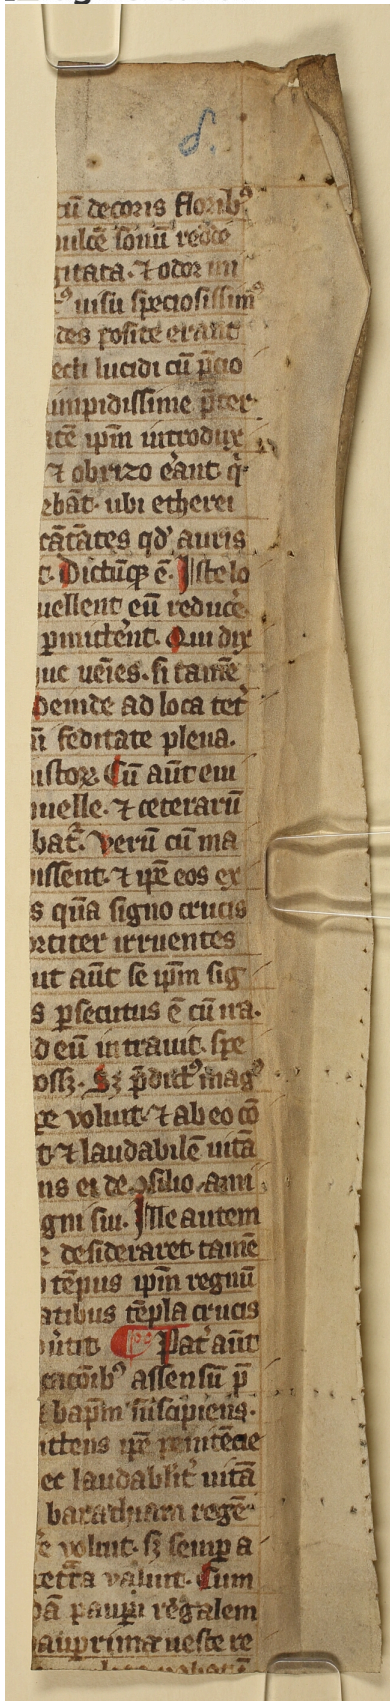 cū decoris florib⁹
dulcē sonū redde
gitata. ⁊ odor mi
⁹ uisu speciosissim⁹
des posite erant
lucidi cū p̄cio
limpidissime p̄ter
ip̄m introdux
⁊ obrizo erant q̄
ebāt. ubi etherei
cātātes qd̓ auris
t. Dictūq̢ ē. Iste lo
uellent eū reduce
ꝑmittent. Qui dix
uc ueīes. si tamē
Deinde ad loca tet
n̄ feditate plena.
ustoꝝ. Cū aūt eiu
muelle. ⁊ ceterarū
bat̄. Verū cū ma
issent. ⁊ ip̄e eos ex
s qn̄a signo crucis
ortiter irruentes
ut aūt se ip̄m sig
s ꝑsecutus ē cū ira.
d eū intrauit. spe
ossꝫ. Sꝫ p̄dict⁹ mag⁹
re voluit. ⁊ ab eo cō
t. ⁊ laudabilē uitā
ns ei de ꝯsilio anni
gni sui. Ille autem
e desideraret. tamē
tēpus ip̄m regnū
atibus tēpla crucis
Pat̄ aūt
cācōib⁹ assensū p̄
bap̄m suscipiens.
ittens ip̄e penitēcie
et laudablit̓ uitā
barachiam regē
e voluit. sꝫ semꝑ a
ualuit. Cum
dā pauꝑi regalem
auꝑrima ueste re